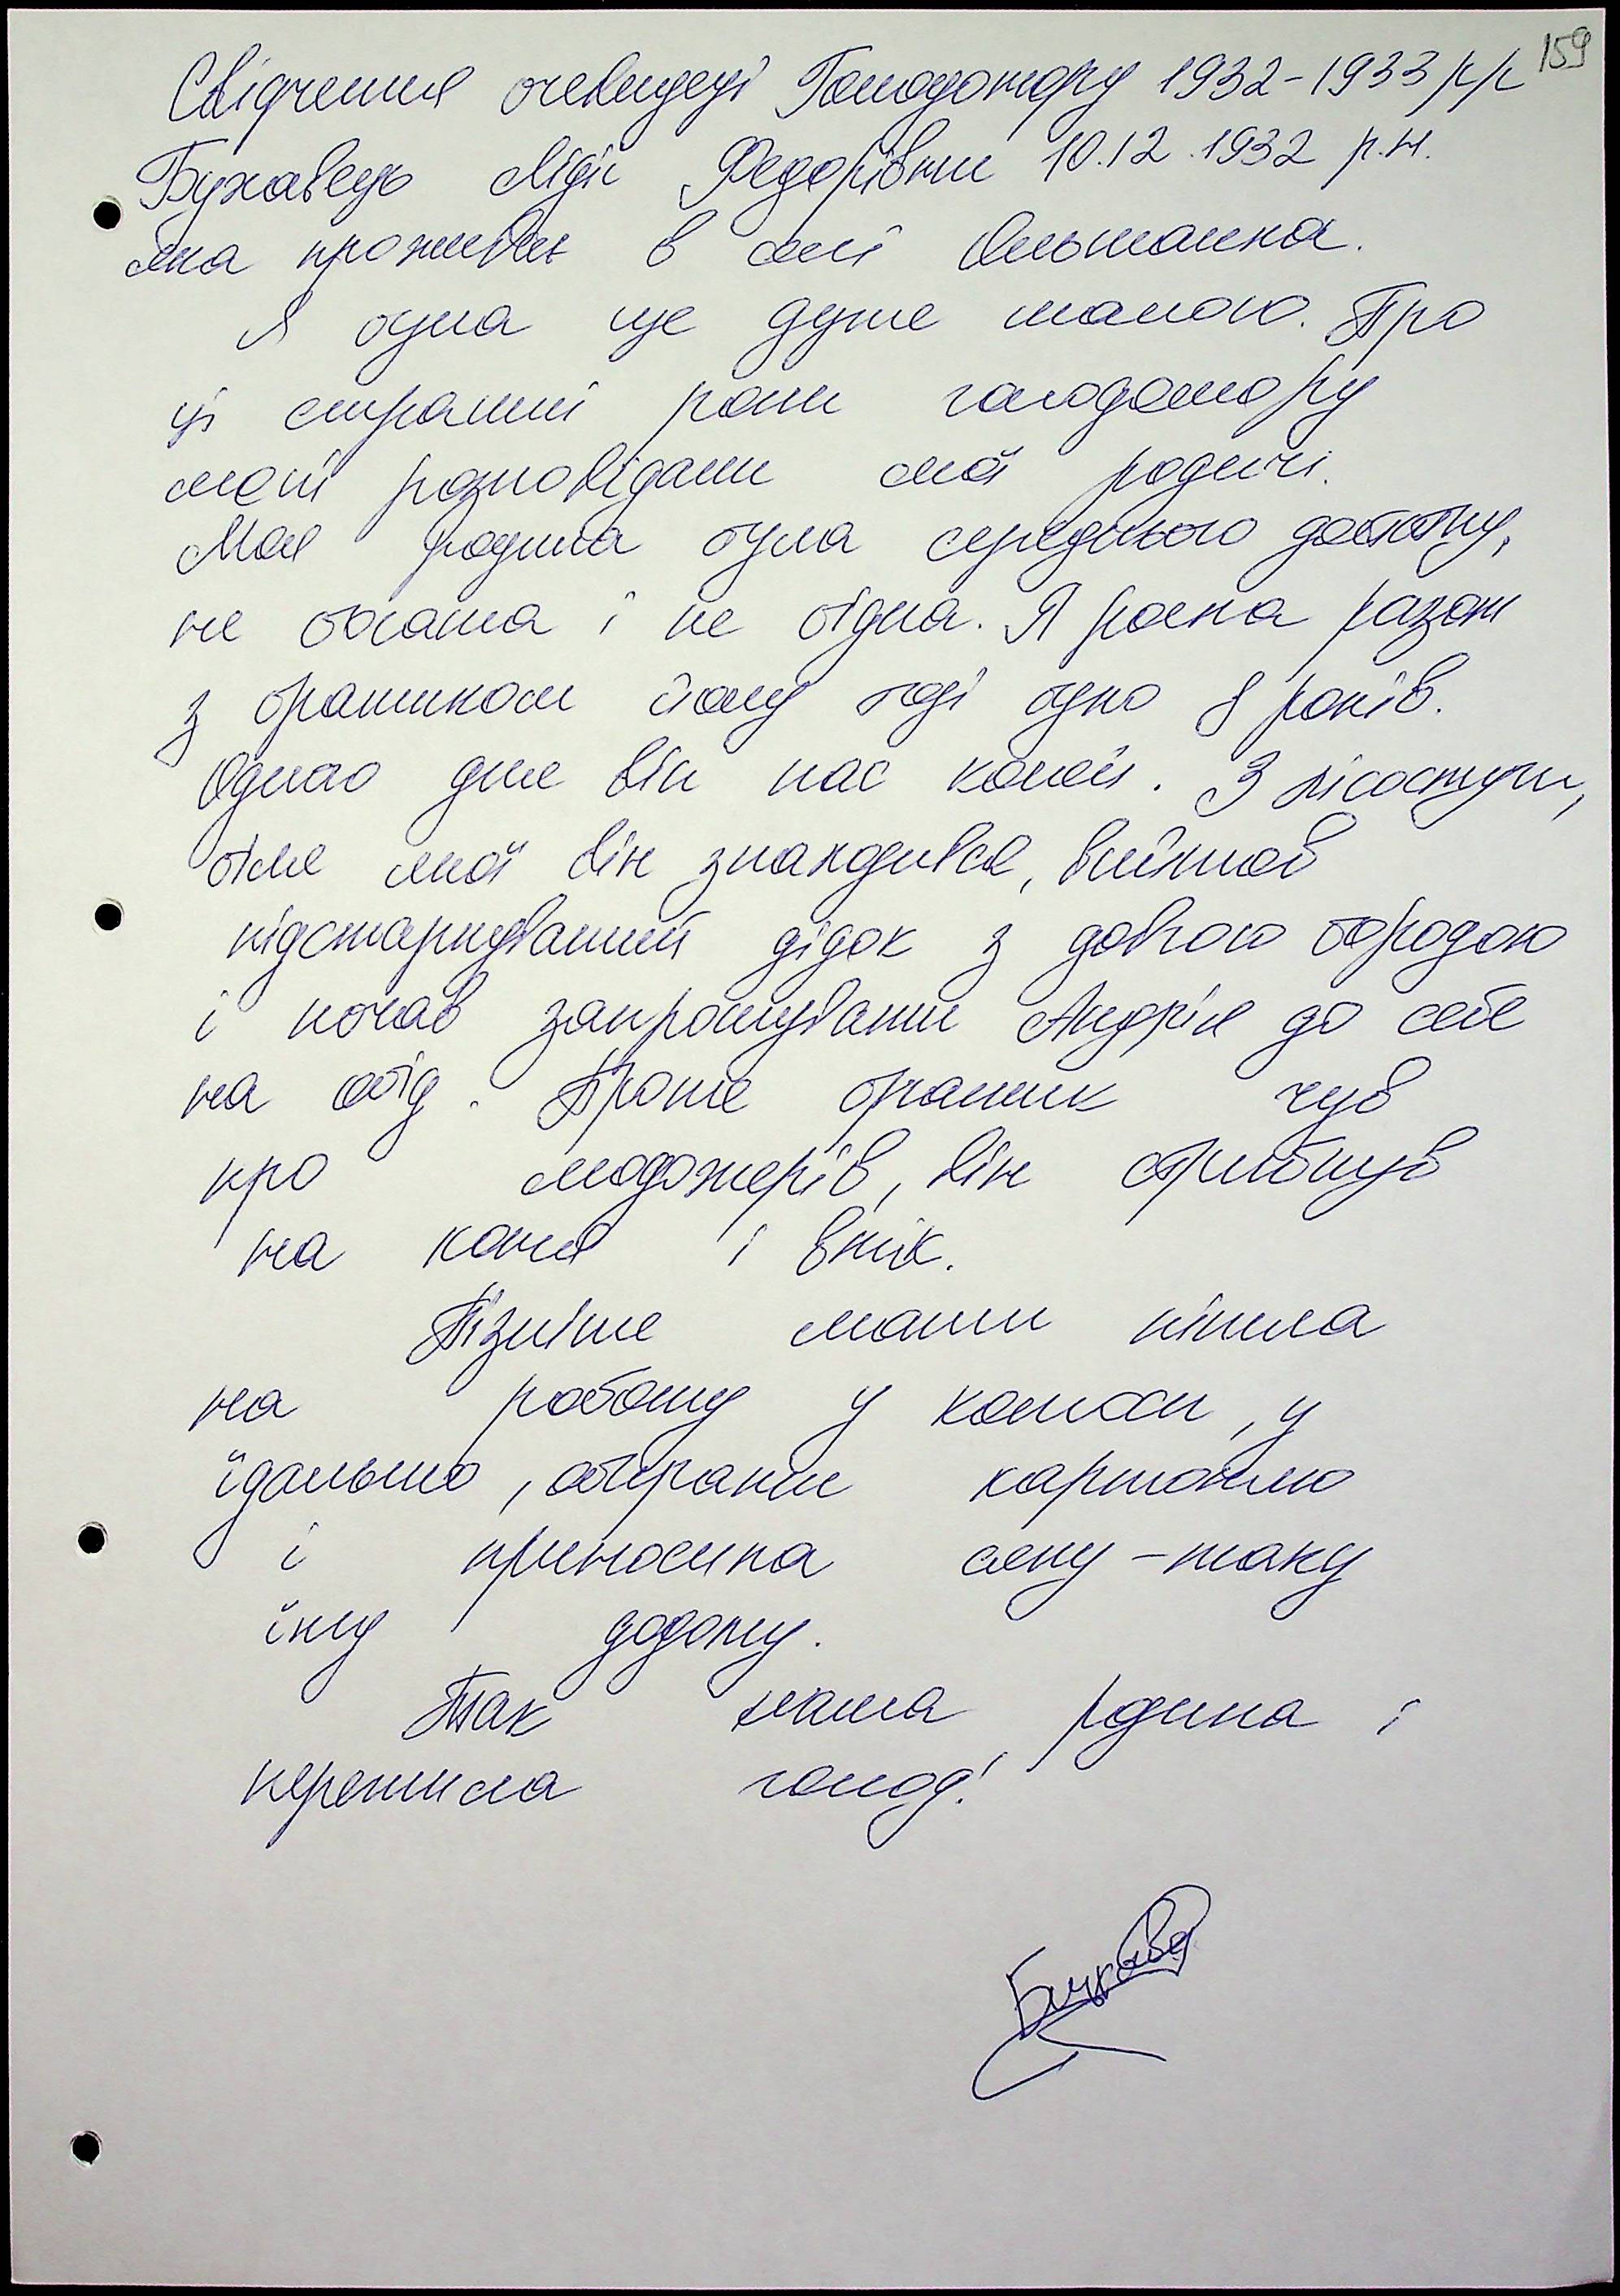 159
Свідчення очевидці Голодомору 1932-1933 р/р
Бухавець Лідії Федорівни 10.12.1932 р.н.
яка проживає в селі Вільшанка.
Я була ще дуже малою. Про
ці страшні роки голодомору
мені розповідали мої родичі.
Моя родина була середнього достатку,
не багата і не бідна. Я росла разом
з братиком йому тоді було 8 років.
Одного дня він пас коней. З лісостуги,
біля якої він знаходився, вийшов
підстаркуватий дідок з довгою бородою
і почав запрошувати Андрія до себе
на обід. Проте братик чув
про людожерів, він стрибнув
на коня і втік.
Пізніше мати пішла
на роботу у колхоз, у
їдальню, обирати картоплю
і приносила сяку-таку
їжу додому.
Так наша родина і
пережила голод!